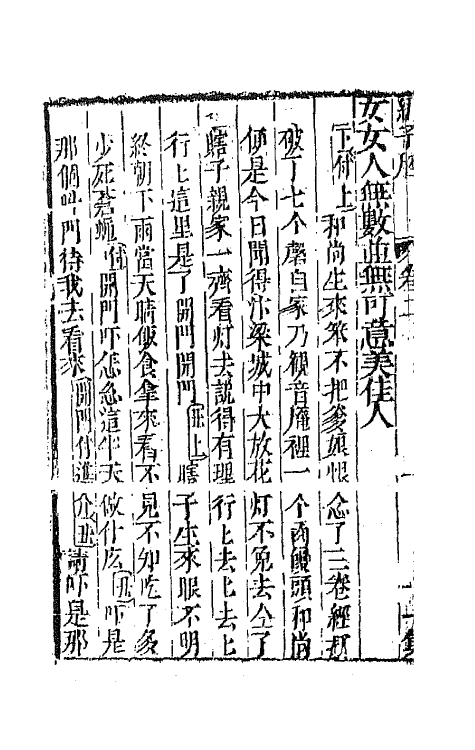 女女人無數並無可意美佳人
下付上和尚生來笨不把爹娘恨念了三卷經打
破了七个磬自家乃觀音庵裡一个饅頭和尚
便是今日聞得汴梁城中大放花灯不免去仝了
瞎子親家一齊看灯去說得有理行上去上去上
行上這里是了開門開門丑上瞎子生來眼不明
終朝下雨當天晴飯食拿來看不見不知吃了多
少死蒼蠅付開門吓怎怎這半天做什広丑吓是
那個叫門待我去看來開門付進介丑請吓是那